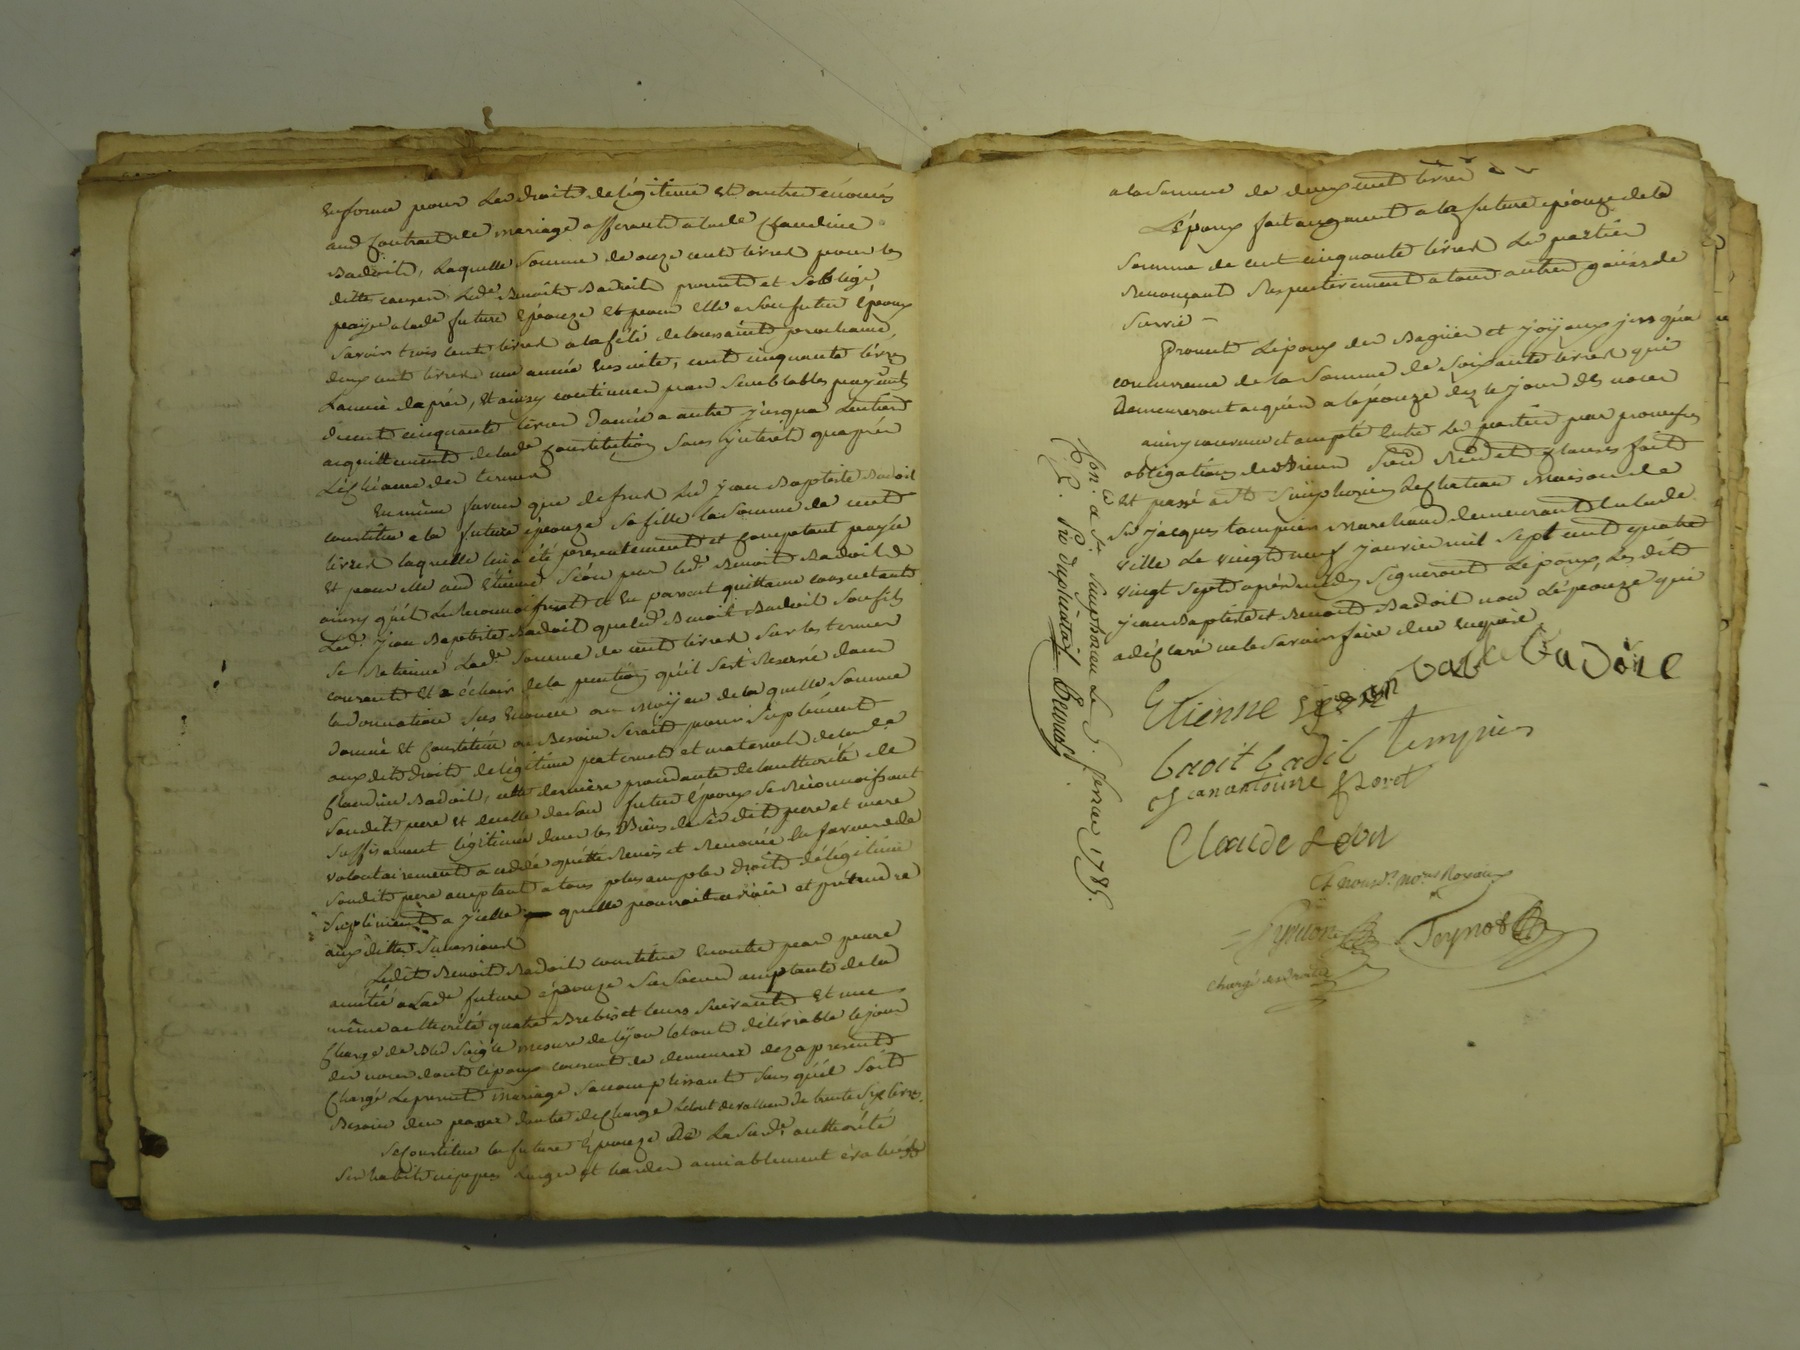 en forme pour les droits de légitime et autres énoncés
aud contrat de mariage afferants a lade Claudine
Badoit, laquelle somme de onze cent livres pour les
dittes causes led.e Benoit Badoit promet et s'oblige
payer a lade future épouze et pour elle a son futur époux
savoir trois cent livres a la fête de toussaint prochaine,
deux cent livres une année ensuite, cent cinquante livres
l'année d'après, et ainsy continuer par semblables payements
de cent cinquante livres d'année a autre jusqua l'entier
acquittement de lade constitution sans interêt qu'après
l'échéance des termes
En même faveur que dessus led jean Baptiste Badoit
constitue a la future épouze sa fille la somme de cent
livres laquelle lui a été presentement et comptant payée
et pour elle aud Etienne Séon par led. Benoit Badoit
ainsy qu'il le reconnoissent et en passent quittance consentant
led. jean Baptiste Badoit que led. Benoit Badoit son fils
se retienne lade somme de cent livres sur les termes
courants et a échoir de la pention qu'il s'est reservée dans
la donnation sus énoncée au moÿen de laquelle somme
donnée et constituée au besoin serait pour suplément
auxdits droits de légitime paternel et maternel de lade
Claudine Badoit, cette derniere procedante de l'authorité de
sondit pere et de celle de son futur époux se reconnoissant
suffisament légitimée dans les Biens de ses dit pere et mere
volontairement a cedé quitté remis et renoncé en faveur de
sondit pere acceptant a tous plus amples droits de légitime
suplément a icelle quelle pourrait avoir et prétendre
aux dittes successions
Ledit Benoit Badoit constitue en outre par pure
amitié a lade future épouze sa soeur acceptante de la
même authorité quatre Brebis et leurs suivants et une
charge de Bled seigle mesure de lyon le tout délivrable le jour
des noces dont l'époux consent de demeurer dez a present
chargé le present mariage s'accomplissant sans qu'il soit
Besoin d'en passer d'autre décharge le tout de valleur de trente six livres.
Se constitue la future épouze de la sude authorité
ses habits nippes linges et hardes amiablement évalués
a la somme de deux cent livres
L'époux fait augment a la future épouze de la
somme de cent cinquante livres les parties
renonçant respectivement a tous autres gains de
survie
Promet l'époux des Bagues et joÿaux jusqu'a
concurrence de la somme de soixante livres qui
demeureront acquis a l'épouze dez le jour des noces
ainsy convenu et accepté entre les parties par promesses
obligations de Biens Soûm Renon et clauses fait
et passé a St Simphorien le chateau maison de
Sr jacques tempier marchand demeurant en lade
ville le vingt neuf janvier mil sept cent quatre
vingt sept après midy signeront l'époux, les dits
jean Baptiste et Benoit Badoit non l'épouze qui
a déclaré ne le savoir faire dûe enquise
Etienne Séon batis badoit
baoit badil tempier
jean antoine
Claude Séon
Et nous d. no.res Royaux
Peynot
chargé
Con.lé a St. Simphorien le 5. fevrier 1787.